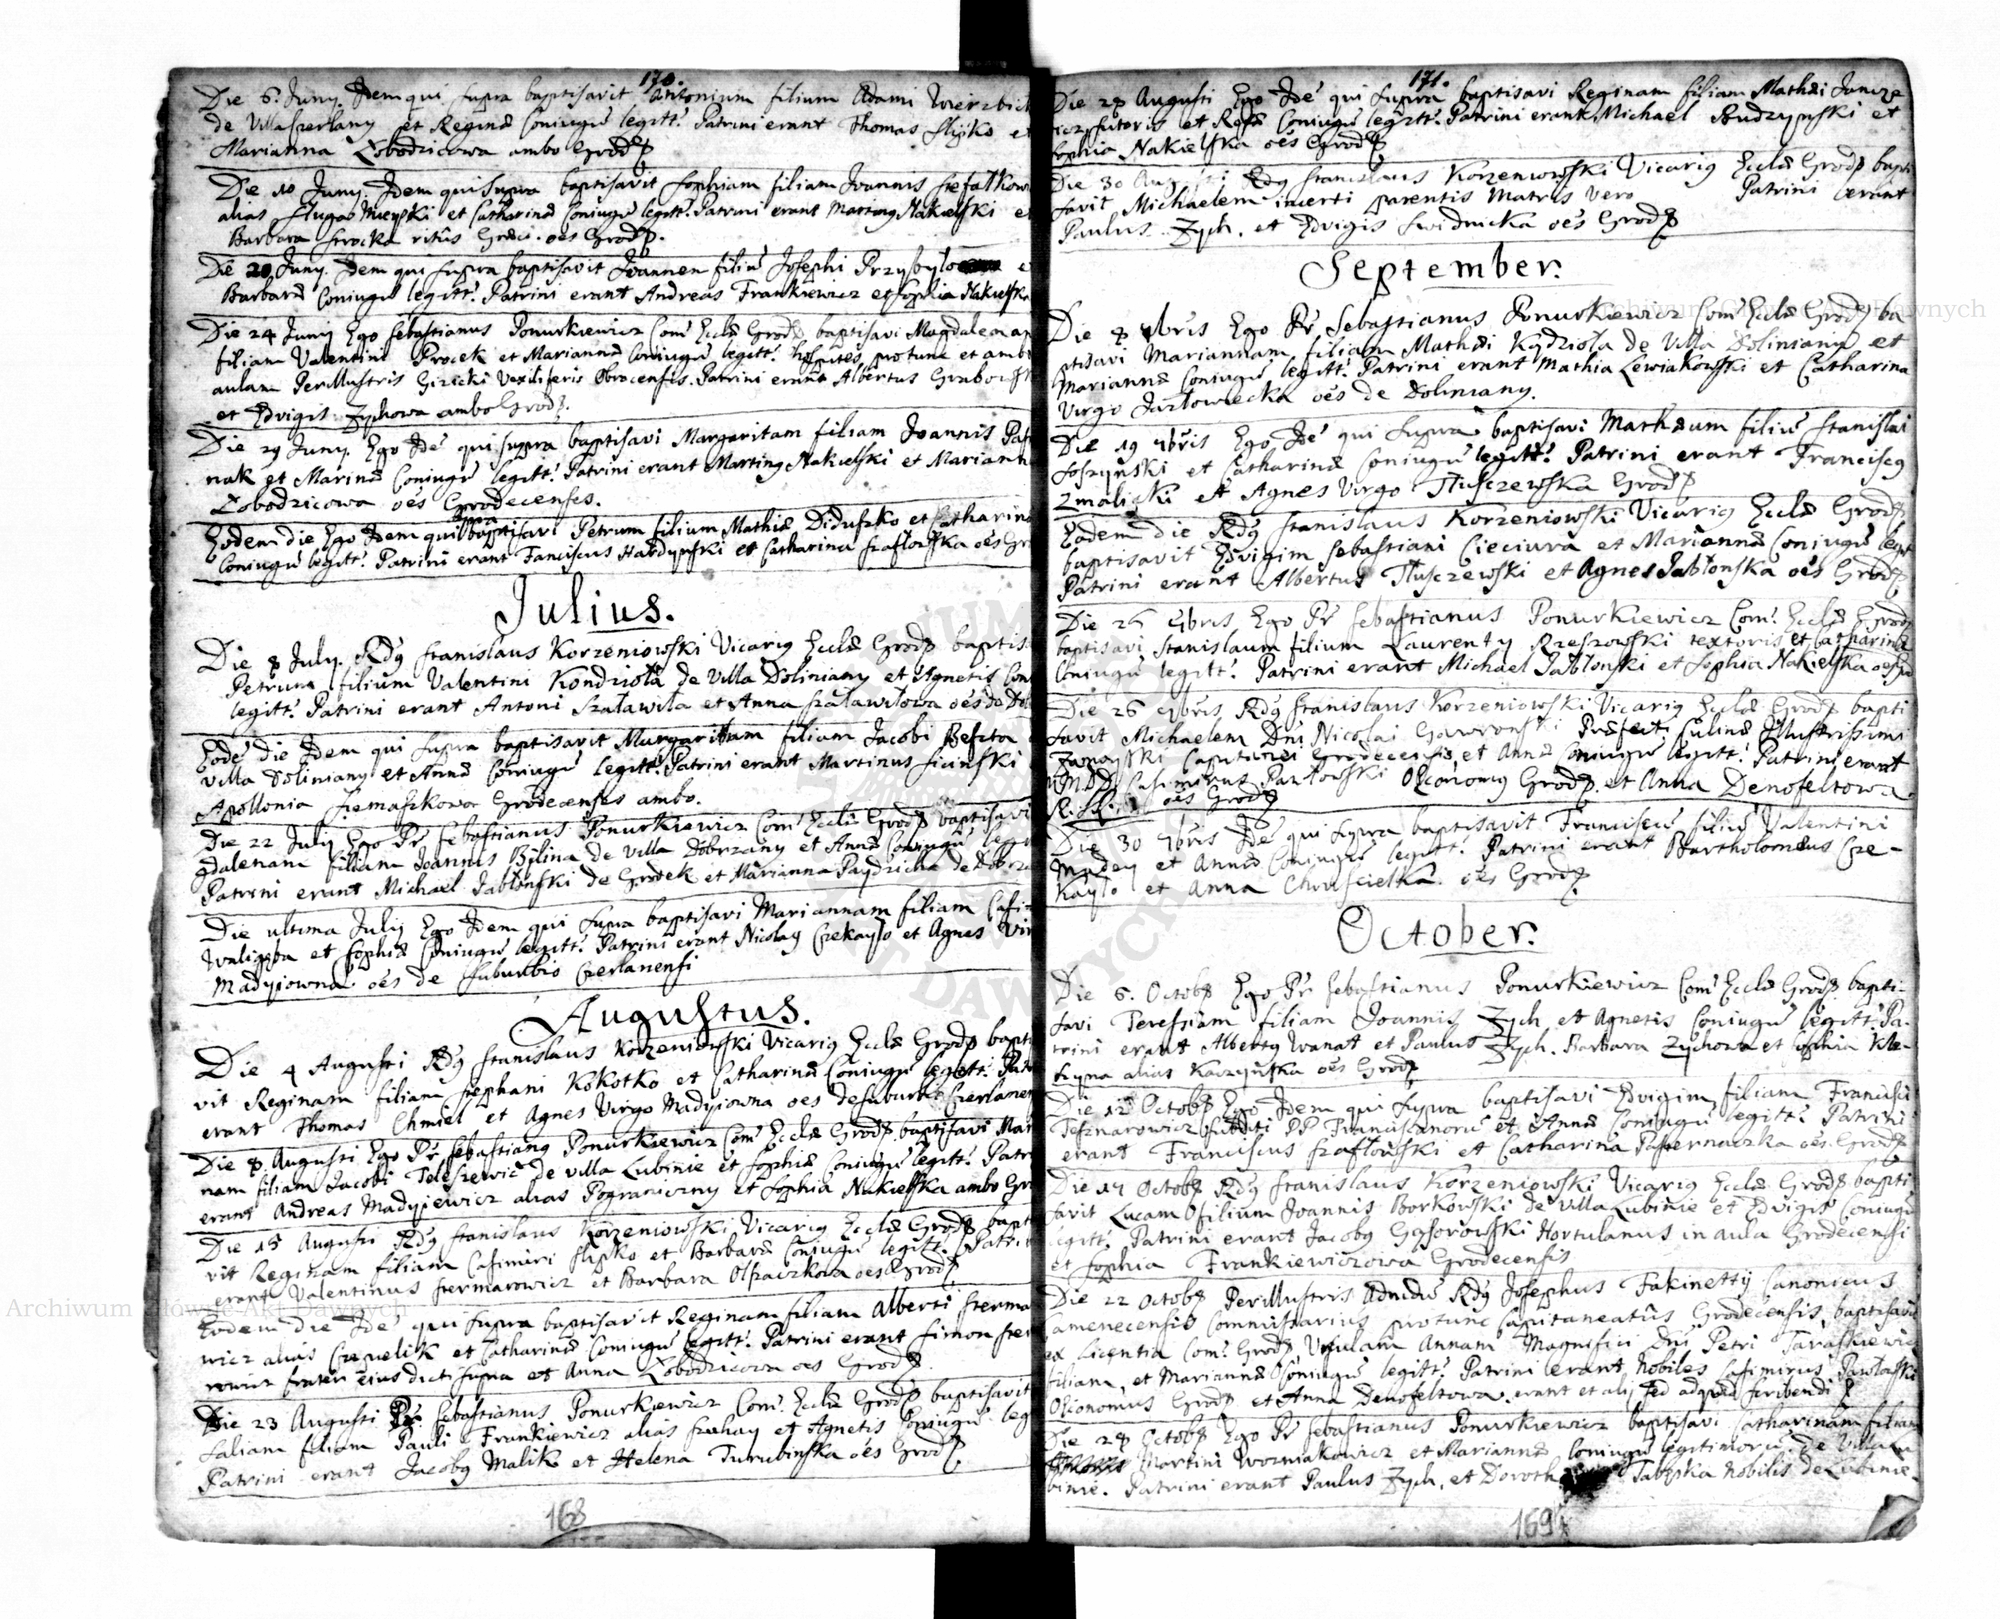 170.
Die 6. Juny. Idem qui supra baptisavit Antonium filium Adami Wierzbick
de Villa Czerlany et Reginæ Coniugũ legitt: Patrini erant Thomas Slipko et
Marianna Łobodzicowa ambo Grodẹ
Die 10 Juny Idem qui Supra baptisavit Sophiam filiam Joannis Stefałkow
alias Sługa et Catharinæ Coniugũ legitt: Patrini erant Marting Nakielski et
Barbara ritûs Græci. oēs Grod.
Die 20 Juny. Idem qui supra baptisavit Joannem filiũ Josephi Przybyło e
Barbaræ Coniugũ legitt: Patrini erant Andreas Frankiewicz et Sophia Nakielska
Die 24 Juny Ego Sebastianus Ponurkiewicz Com: Eccłæ Grod baptisavi Magdalenam
filiam Valentini Procek et Mariannæ Coniugũ legitt: hospites protunc et ambo
aulam Perillustris Gizicki Vexiliferis Obrocensis. Patrini erant Albertus Grabows
et Edvigis Zychowa ambo Grod.
Die 29 Juny. Ego Idē qui supra baptisavi Margaritam filiam Joannis Pas
nak et Marinæ Coniugũ legitt: Patrini erant Marting Nakielski et Mariann
Łobodzicowa oēs Grodecenses.
Eodem die Ego Idem qui supra baptisavi Petrum filium Mathiæ Diduszko et Catharinæ
Coniugũ legitt: Patrini erant Fanciscus Hardynski et Catharina Szafłorska oēs Gr
Julius.
Die 8 July. Rdg Stanislaus Korzeniowski Vicarig Eccłæ Grod baptis
Petrum filium Valentini Kondzioła de Villa Doliniany et Agnetis Con
legitt: Patrini erant Antoni Szaławiła et Anna Szaławiłowa oēs de Dol
Eodē die Idem qui supra baptisavit Margaritam filiam Jacobi Beszta
Villa Doliniany et Annæ Coniugũ legitt: Patrini erant Martinus et
Apollonia Siemaszkowa Grodecenses ambo.
Die 22 July Ego Pr Sebastianus Ponurkiewicz Com: Eccłæ Grod baptisavi
gdalenam filiam Joannis Bilina de Villa Dobrzany et Annæ Coniugũ legitt
Patrini erant Michael Jabłonski de Grodek et Marianna Paydzicha de Dobrza
Die ultima July Ego Idem qui supra baptisavi Mariannam filiam Casim
Waligóba et Sophiæ Coniugũ legitt: Patrini erant Nicolag Czekayło et Agnes Vir
Madyjowna oēs de Suburbio Czerlanensi
Augustus.
Die 4 Augusti Rdg Stanislaus Korzeniowski Vicarig Eccłæ Grod bapti
vit Reginam filiam Stephani Kokotko et Catharinæ Coniugũ legitt: Patri
erant Thomas Chmiel et Agnes Virgo Madyjowna oēs de suburbio Czerlanen
Die 8 Augusti Ego Pr Sebastiang Ponurkiewicz Com: Eccłæ Grod. baptisavi Mari
nam filiam Jacobi Teleszewic de Villa Lubinie et Sophiæ Coniugũ legitt: Patri
erant Andreas Madyjewicz alias Pograniczny et Sophia Nakielska ambo Gro
Die 15 Augusti Rdg Stanislaus Korzeniowski Vicarig Eccłæ Grod bapti
vit Reginam filiam Casimiri Slipko et Barbaræ Coniugũ legitt: Patrini
erant Valentinus Szermarowicz et Barbara Olszaczkowa oēs Grod
Eodem die Idē qui supra baptisavit Reginam filiam Alberti Szerma
wicz alias Czepielik et Catharinæ Coniugũ legitt: Patrini erant Simon Szer
rowicz frater eius dicti supra et Anna Łobodzicowa oēs Grod.
Die 23 Augusti Pr Sebastianus Ponurkiewicz Com: Eccłæ Grod baptisavit
saliam filiam Pauli Frankiewicz alias Szahay et Agnetis Coniugũ leg
Patrini erant Jacobg Malik et Helena Turubinska oēs Grod
168
171.
Die 28 Augusti Ego Idē qui supra baptisavi Reginam filiam Mathæi Jancze
wicz sutoris et Rosæ Coniugũ legitt: Patrini erant Michael Budzynski et
Sophia Nakielska oēs Grod
Die 30 Augusti Rdg Stanislaus Korzeniowski Vicarig Eccłæ Grod bapti
savit Michaelem incerti parentis Matris vero Patrini erant
Paulus Zych. et Edvigis Swidnicka oēs Grod
September.
Die 8 7bris Ego Pr Sebastianus Ponurkiewicz Com: Eccłæ Grod ba
ptisavi Mariannam filiam Mathæi Kądzioła de Villa Doliniany et
Mariannæ Coniugũ legitt: Patrini erant Mathia Lewiakowski et Catharina
Virgo Jazłowiecka oēs de Doliniany.
Die 19 7bris Ego Idē qui supra baptisavi Mathæum filiũ Stanislai
Soszyński et Catharinæ Coniugũ legitt: Patrini erant Franciscg
Zmalicki et Agnes Virgo Tłusczewska Grod
Eodem die Rdg Stanislaus Korzeniowski Vicarig Eccłæ Grod
baptisavit Edvigim Sebastiani Cieciura et Mariannæ Coniugũ legtt
Patrini erant Albertus Tłusczewski et Agnes Jabłonska oēs Grod
Die 26 7bris Ego Pr Sebastianus Ponurkiewicz Com: Eccłæ Grod
baptisavi Stanislaum filium Laurenty Rzeszowski textoris et Catharinæ
Coniugũ legitt: Patrini erant Michael Jabłonski et Sophia Nakielska oēs Gro
Die 26 7bris Rdg Stanislaus Korzeniowski Vicarig Eccłæ Grod bapti
savit Michaelem Dni Nicolai Gawronski Præfecti Culinæ Illustrissimi
Zamoyski Capitanei Grodecensis et Annæ Coniugũ legitt: Patrini erant
Casimirus Pawłowski Oeconomg Grod. et Anna Denofeltowa
oēs Grod
Die 30 7bris Idē qui supra baptisavit Franciscũ filiũ Valentini
Madey et Annæ Coniugũ legitt: Patrini erant Bartholomæus Cze-
kayło et Anna Chruścielka oēs Grod.
October.
Die 6. Octobr Ego Pr Sebastianus Ponurkiewicz Com: Eccłæ Grod. bapti-
savi Teressiam filiam Joannis Zych et Agnetis Coniugũ legitt: Pa-
trini erant Albertg Iwanat et Paulus Zych. Barbara Zychowa et Sophia
alias Kaczynska oēs Grod
Die 12 Octobr Ego Idem qui supra baptisavi Edvigim filiam Francisci
Tesznarowicz subditi PP Franciscanorũ et Annæ Coniugũ legitt: Patrini
erant Franciscus Szafłorski et Catharina Pasternaczka oēs. Grod
Die 14 Octobr Rdg Stanislaus Korzeniowski Vicarig Eccłæ Grod bapti
savit Lucam filium Joannis Borkowski de Villa Lubinie et Edvigis Coniugũ
legitt: Patrini erant Jacobg Gąsorowski Hortulanus in aula Grodecensi
et Sophia Frankiewiczowa Grodecensis
Die 22 Octobr Perillustris Admodũ Rdg Josephus Fakinetty Canonicus
Camenecensis Commissarius protunc Capitaneatûs Grodecensis, baptisavit
ex licentia Com: Grod Ursulam Annam Magnifici Dni Petri Taraskiewicz
filiam, et Mariannæ Coniugũ legitt: Patrini erant Nobiles Casimirus Pawłoski
Okionomus Grod et Anna Denofeltowa. erant et alij sed adqd scribendi
Die 28 Octobr Ego Pr Sebastianus Ponurkiewicz baptisavi Catharinam filiam
Martini Wozniakowicz et Mariannæ Coniugũ legitimorũ. de Villa Lu
binie. Patrini erant Paulus Zych, et Doroth Jabłska Nobilis de Lubinie.
169
Archiwum Główne Akt Dawnych
Archiwum Główne Akt Dawnych